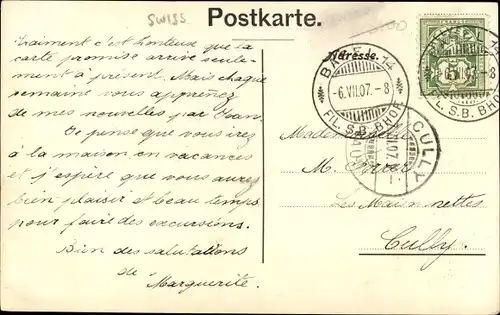 SWISS
Postkarte.
Adresse.
Vraiment c'est honteux que la
carte promise arrive seule-
ment à présent. Mais chaque
semaine vous apprenez
de mes nouvelles par
Je pense que vous irez
à la maison en vacances
et j'espère que vous aurez
bien plaisir et beau temps
pour faire des excursions.
Bien des salutations
de Marguerite.
BASEL 14
-6.VII.07.-8
FIL. L.S.B. BHOF
CULLY
VII.07
Mademoiselle
M.
Les Maisonnettes
Cully.